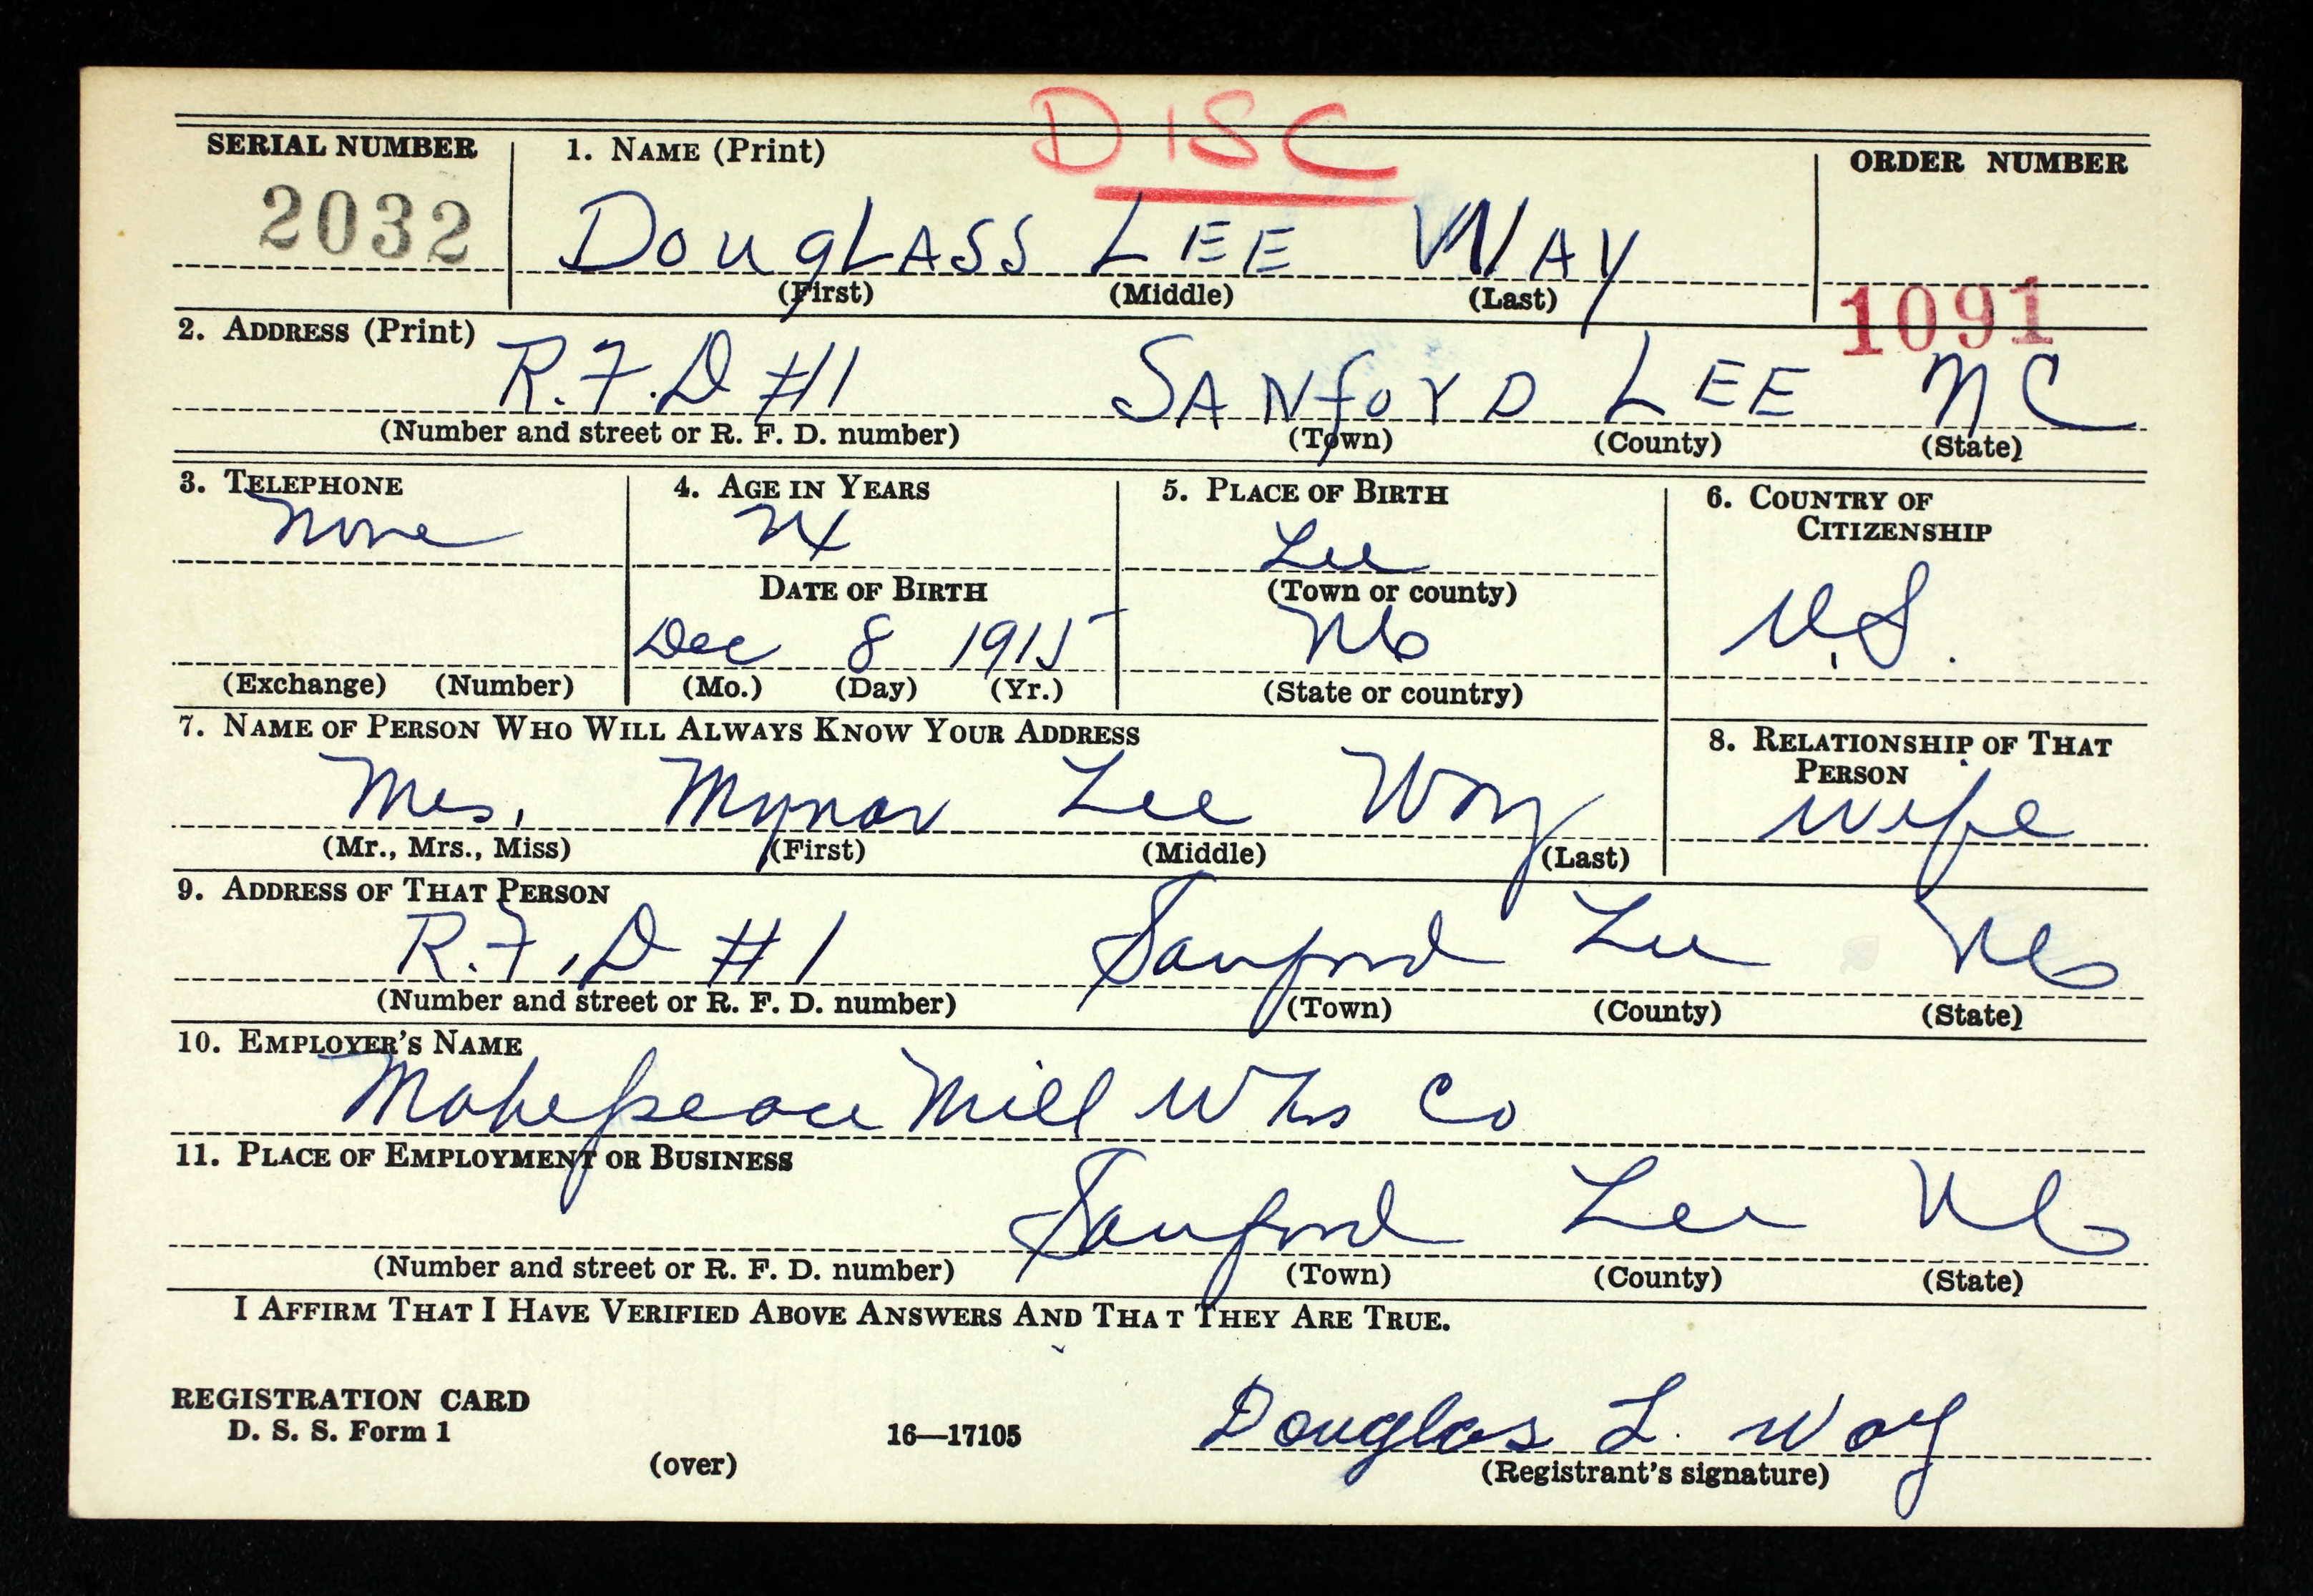 DISC
SERIAL NUMBER 1. NAME (Print) ORDER NUMBER
2032 DOUgLASS LEE WAY
(First) (Middle) (Last)
1091
2. ADDRESS (Print)
R.F.D #1 SANfORD LEE NC
(Number and street or R. F. D. number) (Town) (County) (State)
3. TELEPHONE 4. AGE IN YEARS 5. PLACE OF BIRTH 6. COUNTRY OF CITIZENSHIP
None 24 Lee U.S.
DATE OF BIRTH (Town or county)
Dec 8 1915 NC
(Exchange) (Number) (Mo.) (Day) (Yr.) (State or country)
7. NAME OF PERSON WHO WILL ALWAYS KNOW YOUR ADDRESS 8. RELATIONSHIP OF THAT PERSON
Mrs. Lee Way wife
(Mr., Mrs., Miss) (First) (Middle) (Last)
9. ADDRESS OF THAT PERSON
R.F.D #1 Sanford Lee NC
(Number and street or R. F. D. number) (Town) (County) (State)
10. EMPLOYER'S NAME
Makepeace Mill Co
11. PLACE OF EMPLOYMENT OR BUSINESS
Sanford Lee NC
(Number and street or R. F. D. number) (Town) (County) (State)
I AFFIRM THAT I HAVE VERIFIED ABOVE ANSWERS AND THAT THEY ARE TRUE.
REGISTRATION CARD
D. S. S. Form 1 16—17105 Douglas L. Way
(over) (Registrant's signature)